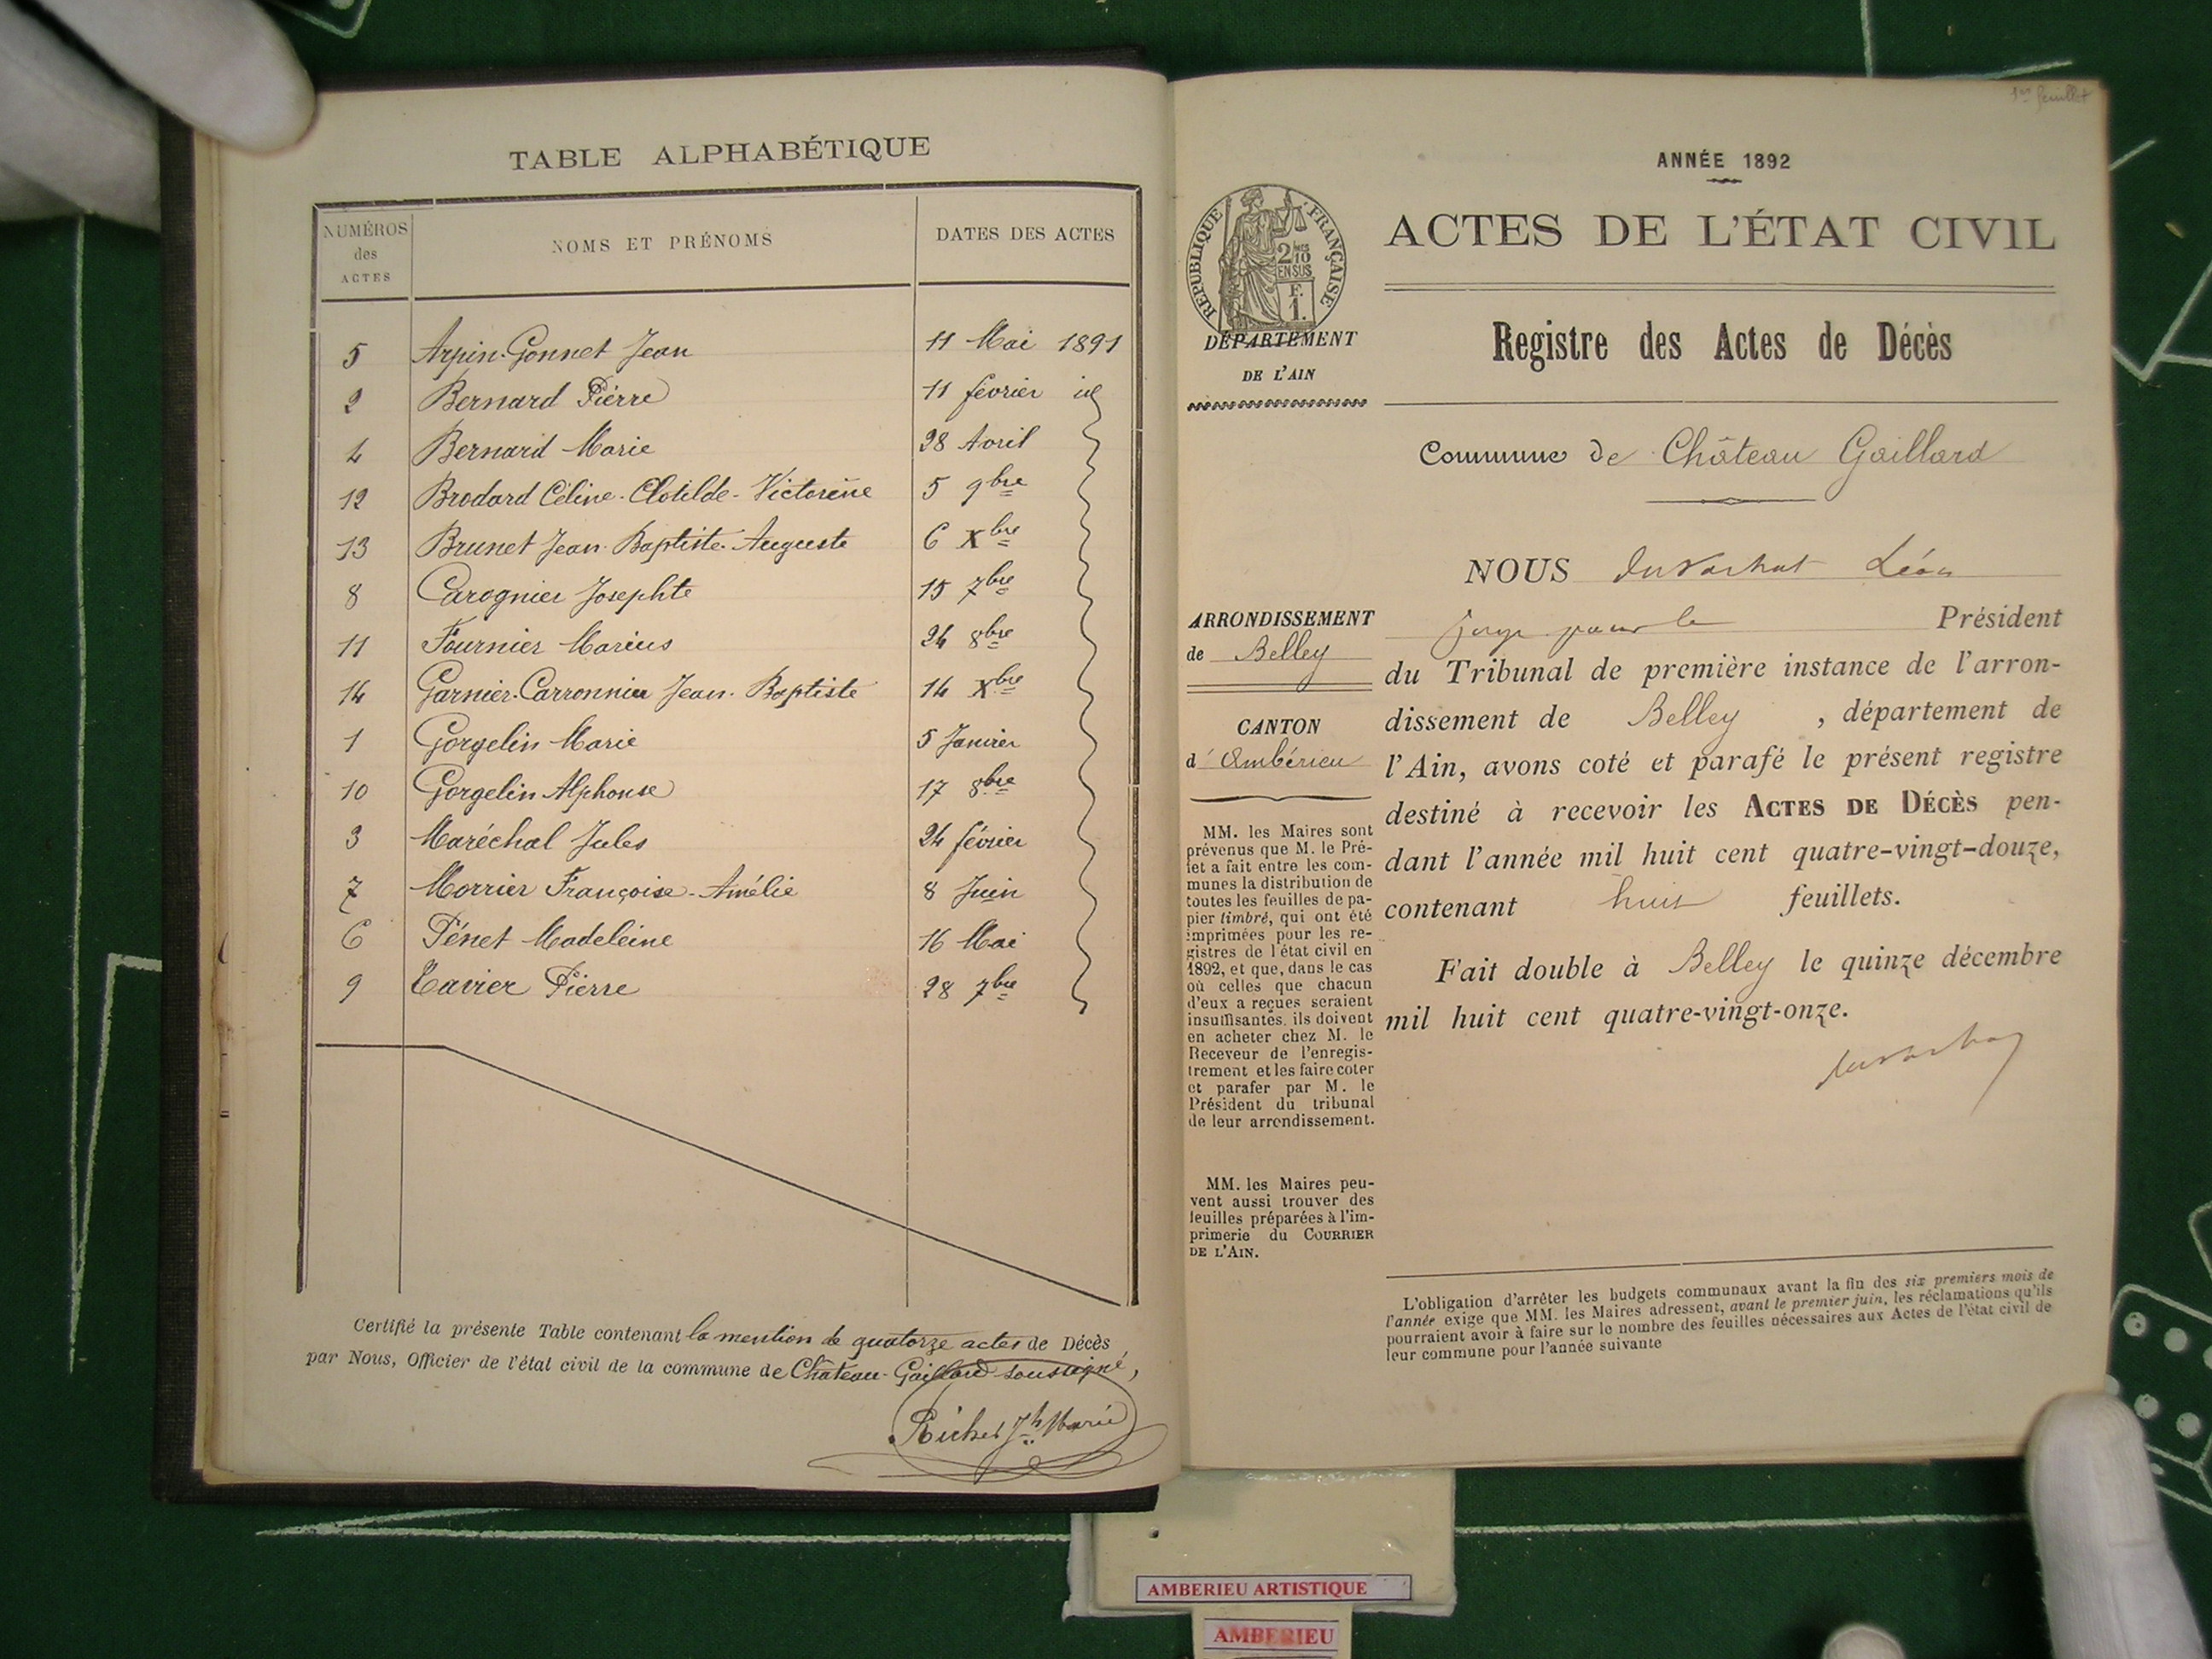 TABLE ALPHABÉTIQUE
NUMÉROS des ACTES NOMS ET PRÉNOMS DATES DES ACTES
5 Arpin-Gonnet Jean 11 Mai 1891
2 Bernard Pierre 11 février id
4 Bernard Marie 28 Avril
12 Brodard Céline-Clotilde-Victorine 5 9bre
13 Brunet Jean-Baptiste-Auguste 6 Xbre
8 Carognier Josephte 15 7bre
11 Fournier Marius 24 8bre
14 Garnier-Carronnier Jean-Baptiste 14 Xbre
1 Gorgelin Marie 5 Janvier
10 Gorgelin Alphonse 17 8bre
3 Maréchal Jules 24 février
7 Morrier Françoise-Amélie 8 Juin
6 Pénet Madeleine 16 Mai
9 Tavier Pierre 28 7bre
Certifié la présente Table contenant la mention de quatorze actes de Décès
par Nous, Officier de l'état civil de la commune de Château-Gaillard soussigné,
1er feuillet
ANNÉE 1892
RÉPUBLIQUE FRANÇAISE
2 10
EN SUS
F.
1.
ACTES DE L'ÉTAT CIVIL
Registre des Actes de Décès
DÉPARTEMENT
DE L'AIN
Commune de Château Gaillard
ARRONDISSEMENT
de Belley
CANTON
d'Ambérieu
MM. les Maires sont
prévenus que M. le Pré-
fet a fait entre les com-
munes la distribution de
toutes les feuilles de pa-
pier timbré, qui ont été
imprimées pour les re-
gistres de l'état civil en
1892, et que, dans le cas
où celles que chacun
d'eux a reçues seraient
insuffisantes, ils doivent
en acheter chez M. le
Receveur de l'enregis-
trement et les faire coter
et parafer par M. le
Président du tribunal
de leur arrondissement.
MM. les Maires peu-
vent aussi trouver des
feuilles préparées à l'im-
primerie du COURRIER
DE L'AIN.
NOUS Léon
Président
du Tribunal de première instance de l'arron-
dissement de Belley, département de
l'Ain, avons coté et parafé le présent registre
destiné à recevoir les ACTES DE DÉCÈS pen-
dant l'année mil huit cent quatre-vingt-douze,
contenant huit feuillets.
Fait double à Belley le quinze décembre
mil huit cent quatre-vingt-onze.
L'obligation d'arrêter les budgets communaux avant la fin des six premiers mois de
l'année exige que MM. les Maires adressent, avant le premier juin, les réclamations qu'ils
pourraient avoir à faire sur le nombre des feuilles nécessaires aux Actes de l'état civil de
leur commune pour l'année suivante
AMBERIEU ARTISTIQUE
AMBERIEU